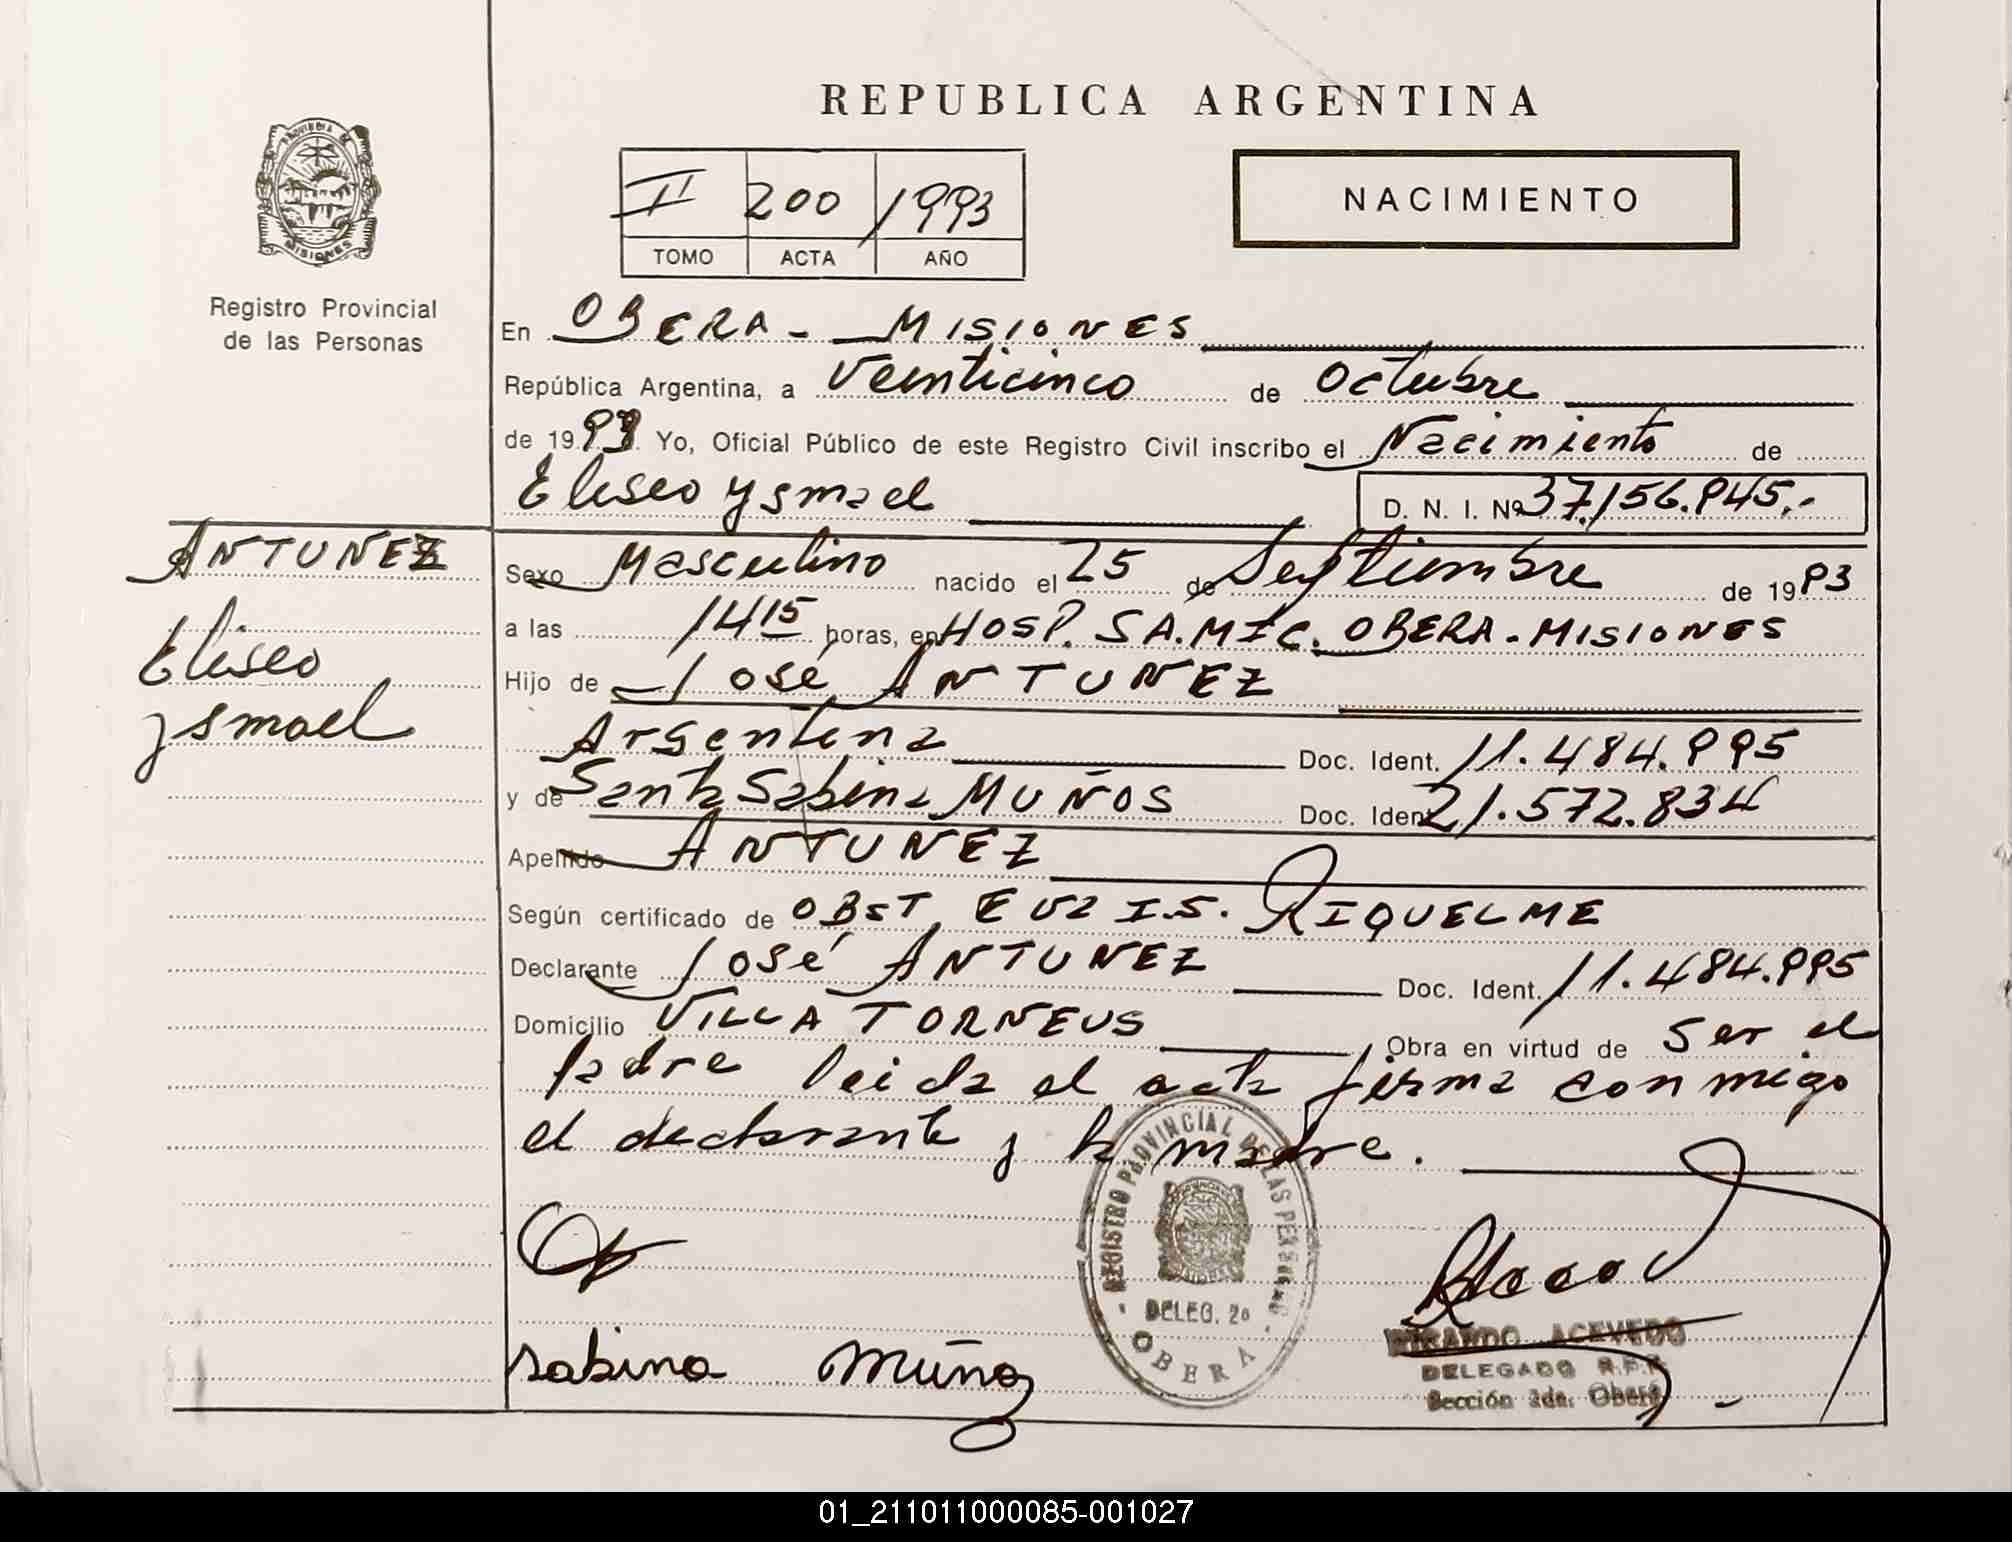 REPUBLICA ARGENTINA
PROVINCIA DE
MISIONES
Registro Provincial
de las Personas
II 200 /1993
TOMO ACTA AÑO
NACIMIENTO
En OBERA - MISIONES
República Argentina, a Veinticinco de Octubre
de 19 93 Yo, Oficial Público de este Registro Civil inscribo el Nacimiento de
Eliseo Ysmael D. N. I. Nº 37.156.945.-
ANTUNEZ
Eliseo
Ysmael
Sexo Masculino nacido el 25 de Septiembre de 19 93
a las 14 15 horas, en HOSP. SA.MIC. OBERA - MISIONES
Hijo de José ANTUNEZ
Argentina Doc. Ident. 11.484.995
y de Santa Sabina MUÑOS Doc. Ident. 21.572.834
Apellido ANTUNEZ
Según certificado de OBST. EVA I.S. RIQUELME
Declarante José ANTUNEZ Doc. Ident. 11.484.995
Domicilio VILLA TORNEUS Obra en virtud de Ser el
Padre leida el acta firma conmigo
el declarante y la madre.
REGISTRO PROVINCIAL DE LAS PERSONAS
DELEG. 2a
OBERA
sabina Muñoz
ACEVEDO
DELEGADO R.P.P.
Sección 2da. Oberá
01_211011000085-001027